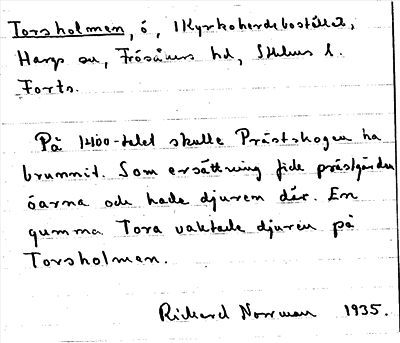 Torsholmen, ö, 1 Kyrkoherdebostället,
Hargs sn, Frösåkers hd, Sthlms l.
Forts.
På 1400-talet skulle Prästskogen ha
brunnit. Som ersättning fick prästgården
öarna och hade djuren där. En
gumma Tora vaktade djuren på
Torsholmen.
Rickard Norrman 1935.